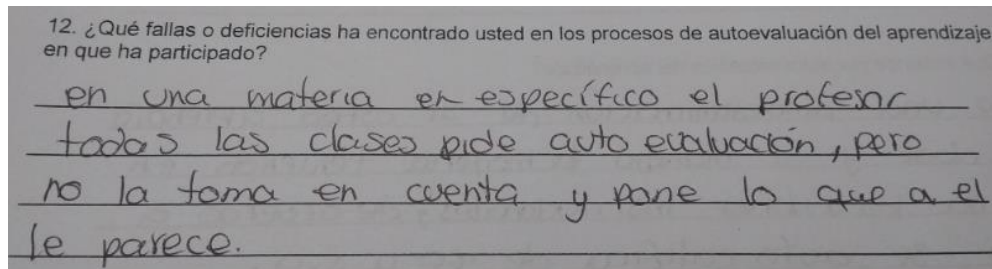 12. ¿Qué fallas o deficiencias ha encontrado usted en los procesos de autoevaluación del aprendizaje
en que ha participado?
en una materia en específico el profesor
todas las clases pide auto evaluación, pero
no la toma en cuenta y pone lo que a el
le parece.